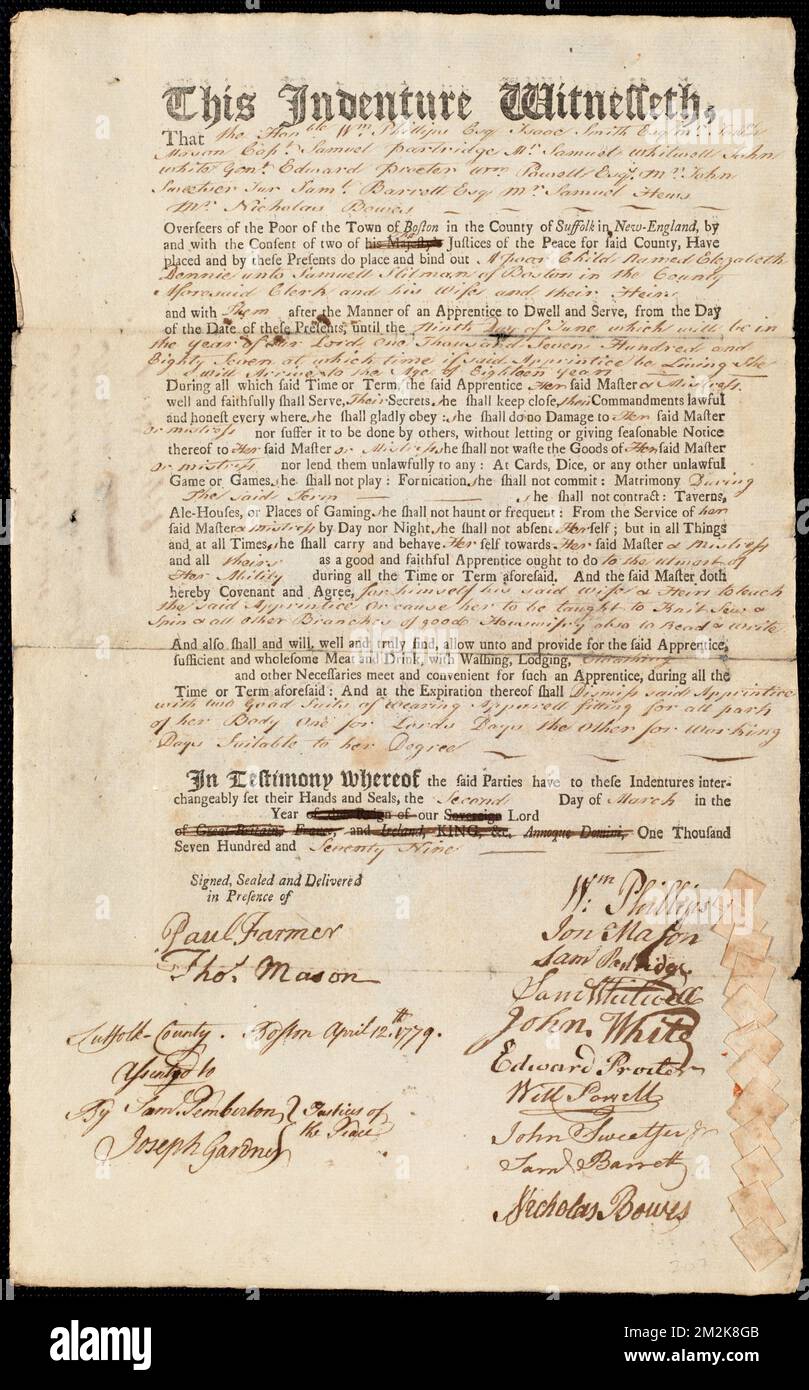 This Indenture Witnesseth,
That the Hon.ble Wm Phillips Esq Isaac Smith Esq Mr. Jonn
Mason Capt. Samuel Partridge Mr. Samuel Whitwell John
White Gent. Edward Procter Wm Powell Esq. Mr. John
Sweetser Jur Saml. Barrett Esq Mr Samuel Hews
Mr Nicholas Bowes
Overseers of the Poor of the Town of Boston in the County of Suffolk in New-England, by
and with the Consent of two of his Majesty's Justices of the Peace for said County, Have
placed and by these Presents do place and bind out A poor Child named Elezabeth
Dennie unto Samuell Stilman of Boston in the County
Aforesaid Clerk and his Wife and their Heirs
and with Them after the Manner of an Apprentice to Dwell and Serve, from the Day
of the Date of these Presents, until the Ninth Day of June which will be in
the year of our Lord One Thousand Seven Hundred and
Eighty Seven at which time if said Apprentice be Living She
will Arrive to the Age of Eighteen years
During all which said Time or Term, the said Apprentice Her said Master & Mistress
well and faithfully shall Serve, Their Secrets she shall keep close, their Commandments lawful
and honest every where she shall gladly obey : she shall do no Damage to Her said Master
or mistress nor suffer it to be done by others, without letting or giving seasonable Notice
thereof to Her said Master or Mistress she shall not waste the Goods of Her said Master
or mistress nor lend them unlawfully to any : At Cards, Dice, or any other unlawful
Game or Games, she shall not play : Fornication she shall not commit : Matrimony During
The said Term she shall not contract : Taverns,
Ale-Houses, or Places of Gaming she shall not haunt or frequent : From the Service of her
said Master & mistress by Day nor Night she shall not absent Her self ; but in all Things
and at all Times, she shall carry and behave Her self towards Her said Master & Mistress
and all theirs as a good and faithful Apprentice ought to do to the utmost of
Her Ability during all the Time or Term aforesaid. And the said Master doth
hereby Covenant and Agree, for himself his said Wife & Heirs to teach
the said Apprentice or cause her to be taught to Knit Sew &
Spin & all other Branches of good Housewifry also to Read & Write
And also shall and will, well and truly find, allow unto and provide for the said Apprentice,
sufficient and wholesome Meat and Drink, with Washing, Lodging,
and other Necessaries meet and convenient for such an Apprentice, during all the
Time or Term aforesaid : And at the Expiration thereof shall Dismiss said Apprentice
with two Good Suits of Wearing Apparell fitting for all parts
of her Body One for Lords Days the Other for Working
Days Suitable to her Degree
In Testimony Whereof the said Parties have to these Indentures inter-
changeably set their Hands and Seals, the Second Day of March in the
Year of the Reign of our Sovereign Lord
of Great-Britain, France, and Ireland, KING, &c. Annoque Domini, One Thousand
Seven Hundred and Seventy Nine
Signed, Sealed and Delivered
in Presence of
Paul Farmer
Thos. Mason
Wm Phillips
Jon Mason
Sam Partridge
Saml Whitwell
John White
Edward Procter
Will Powell
John Sweetser Jr
Saml Barrett
Nicholas Bowes
Suffolk County. Boston April 12th. 1779.
Assented to
By Sam. Pemberton } Justices of
Joseph Gardner } the Peace
207
alamy
alamy
Image ID: 2M2K8GB
www.alamy.com